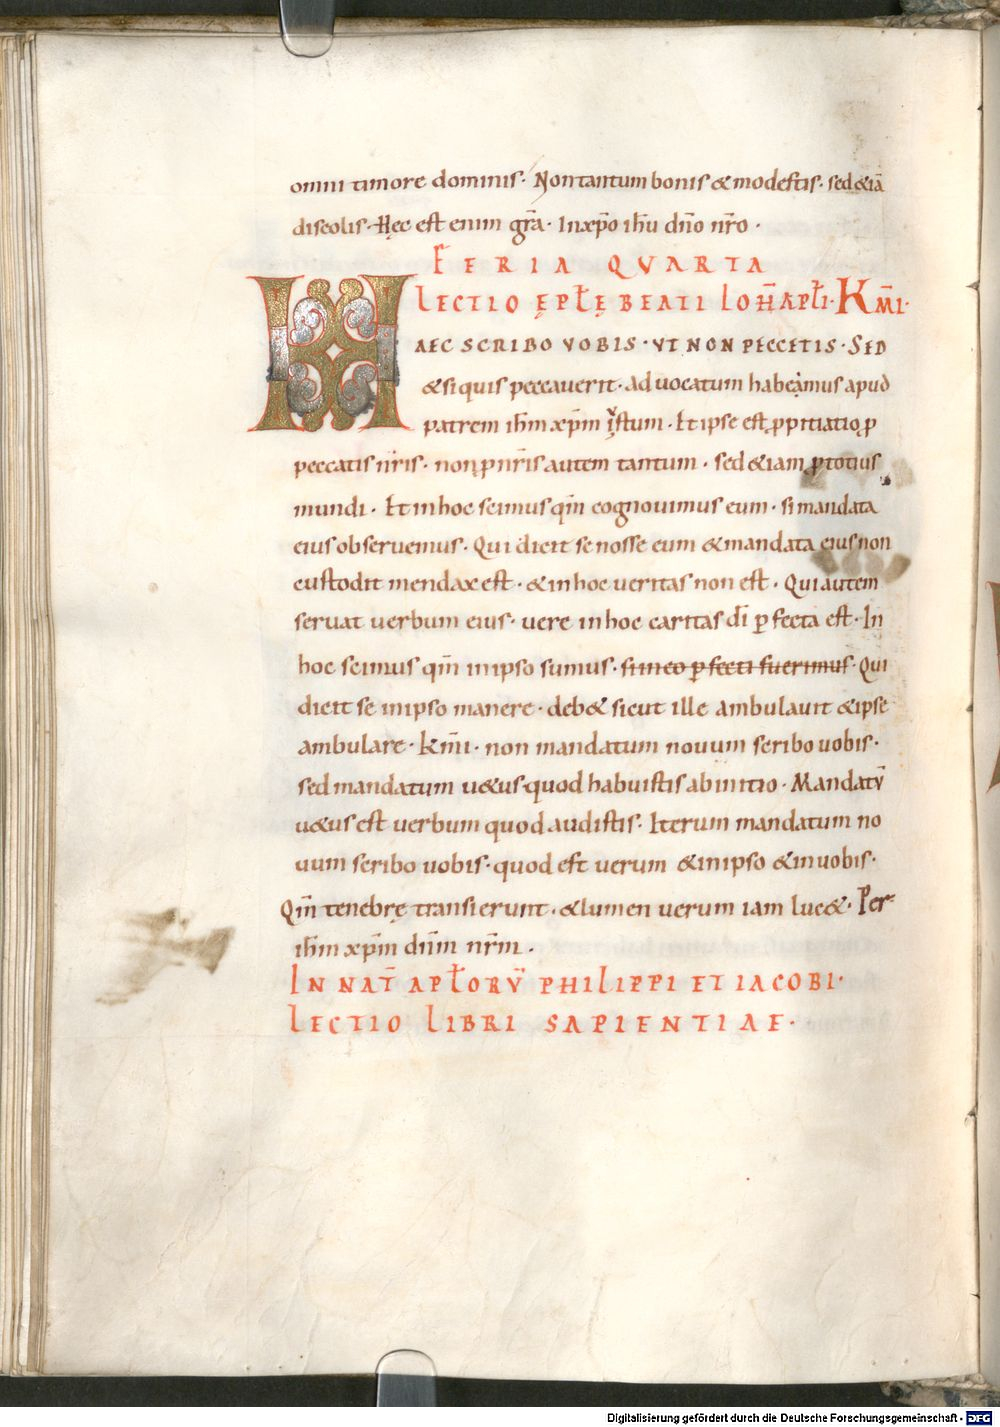 omni timore dominis. Non tantum bonis & modestis. sed &iā
discolis. Hęc est enim gr̄a. In xp̄o ih̄u dn̄o nr̄o.
FERIA QVARTA
LECTIO EPŁĘ BEATI IOH̄ APŁI. KM̄I.
HAEC SCRIBO VOBIS. VT NON PECCETIS. SED
& si quis peccauerit. aduocatum habeamus apud
patrem ih̄m xp̄m iustum. Et ipse est ꝓpitiatio ꝓ
peccatis nr̄is. non ꝓ nr̄is autem tantum. sed &iam ꝓ totius
mundi. Et in hoc scimus qm̄ cognouimus eum. si mandata
eius obseruemus. Qui dicit se nosse eum & mandata eius non
custodit mendax est. & in hoc ueritas non est. Qui autem
seruat uerbum eius. uere in hoc caritas dī ꝑfecta est. In
hoc scimus qm̄ in ipso sumus. si in eo ꝑfecti fuerimus. Qui
dicit se in ipso manere. deb& sicut ille ambulauit & ipse
ambulare. Km̄i. non mandatum nouum scribo uobis.
sed mandatum u&us quod habuistis ab initio. Mandatū
u&us est uerbum quod audistis. Iterum mandatum no
uum scribo uobis. quod est uerum & in ipso & in uobis.
Qm̄ tenebrę transierunt. & lumen uerum iam luc&. Per
ih̄m xp̄m dn̄m nr̄m.
IN NAT̄ APŁORV̄ PHILIPPI ET IACOBI.
LECTIO LIBRI SAPIENTIAE.
Digitalisierung gefördert durch die Deutsche Forschungsgemeinschaft - DFG